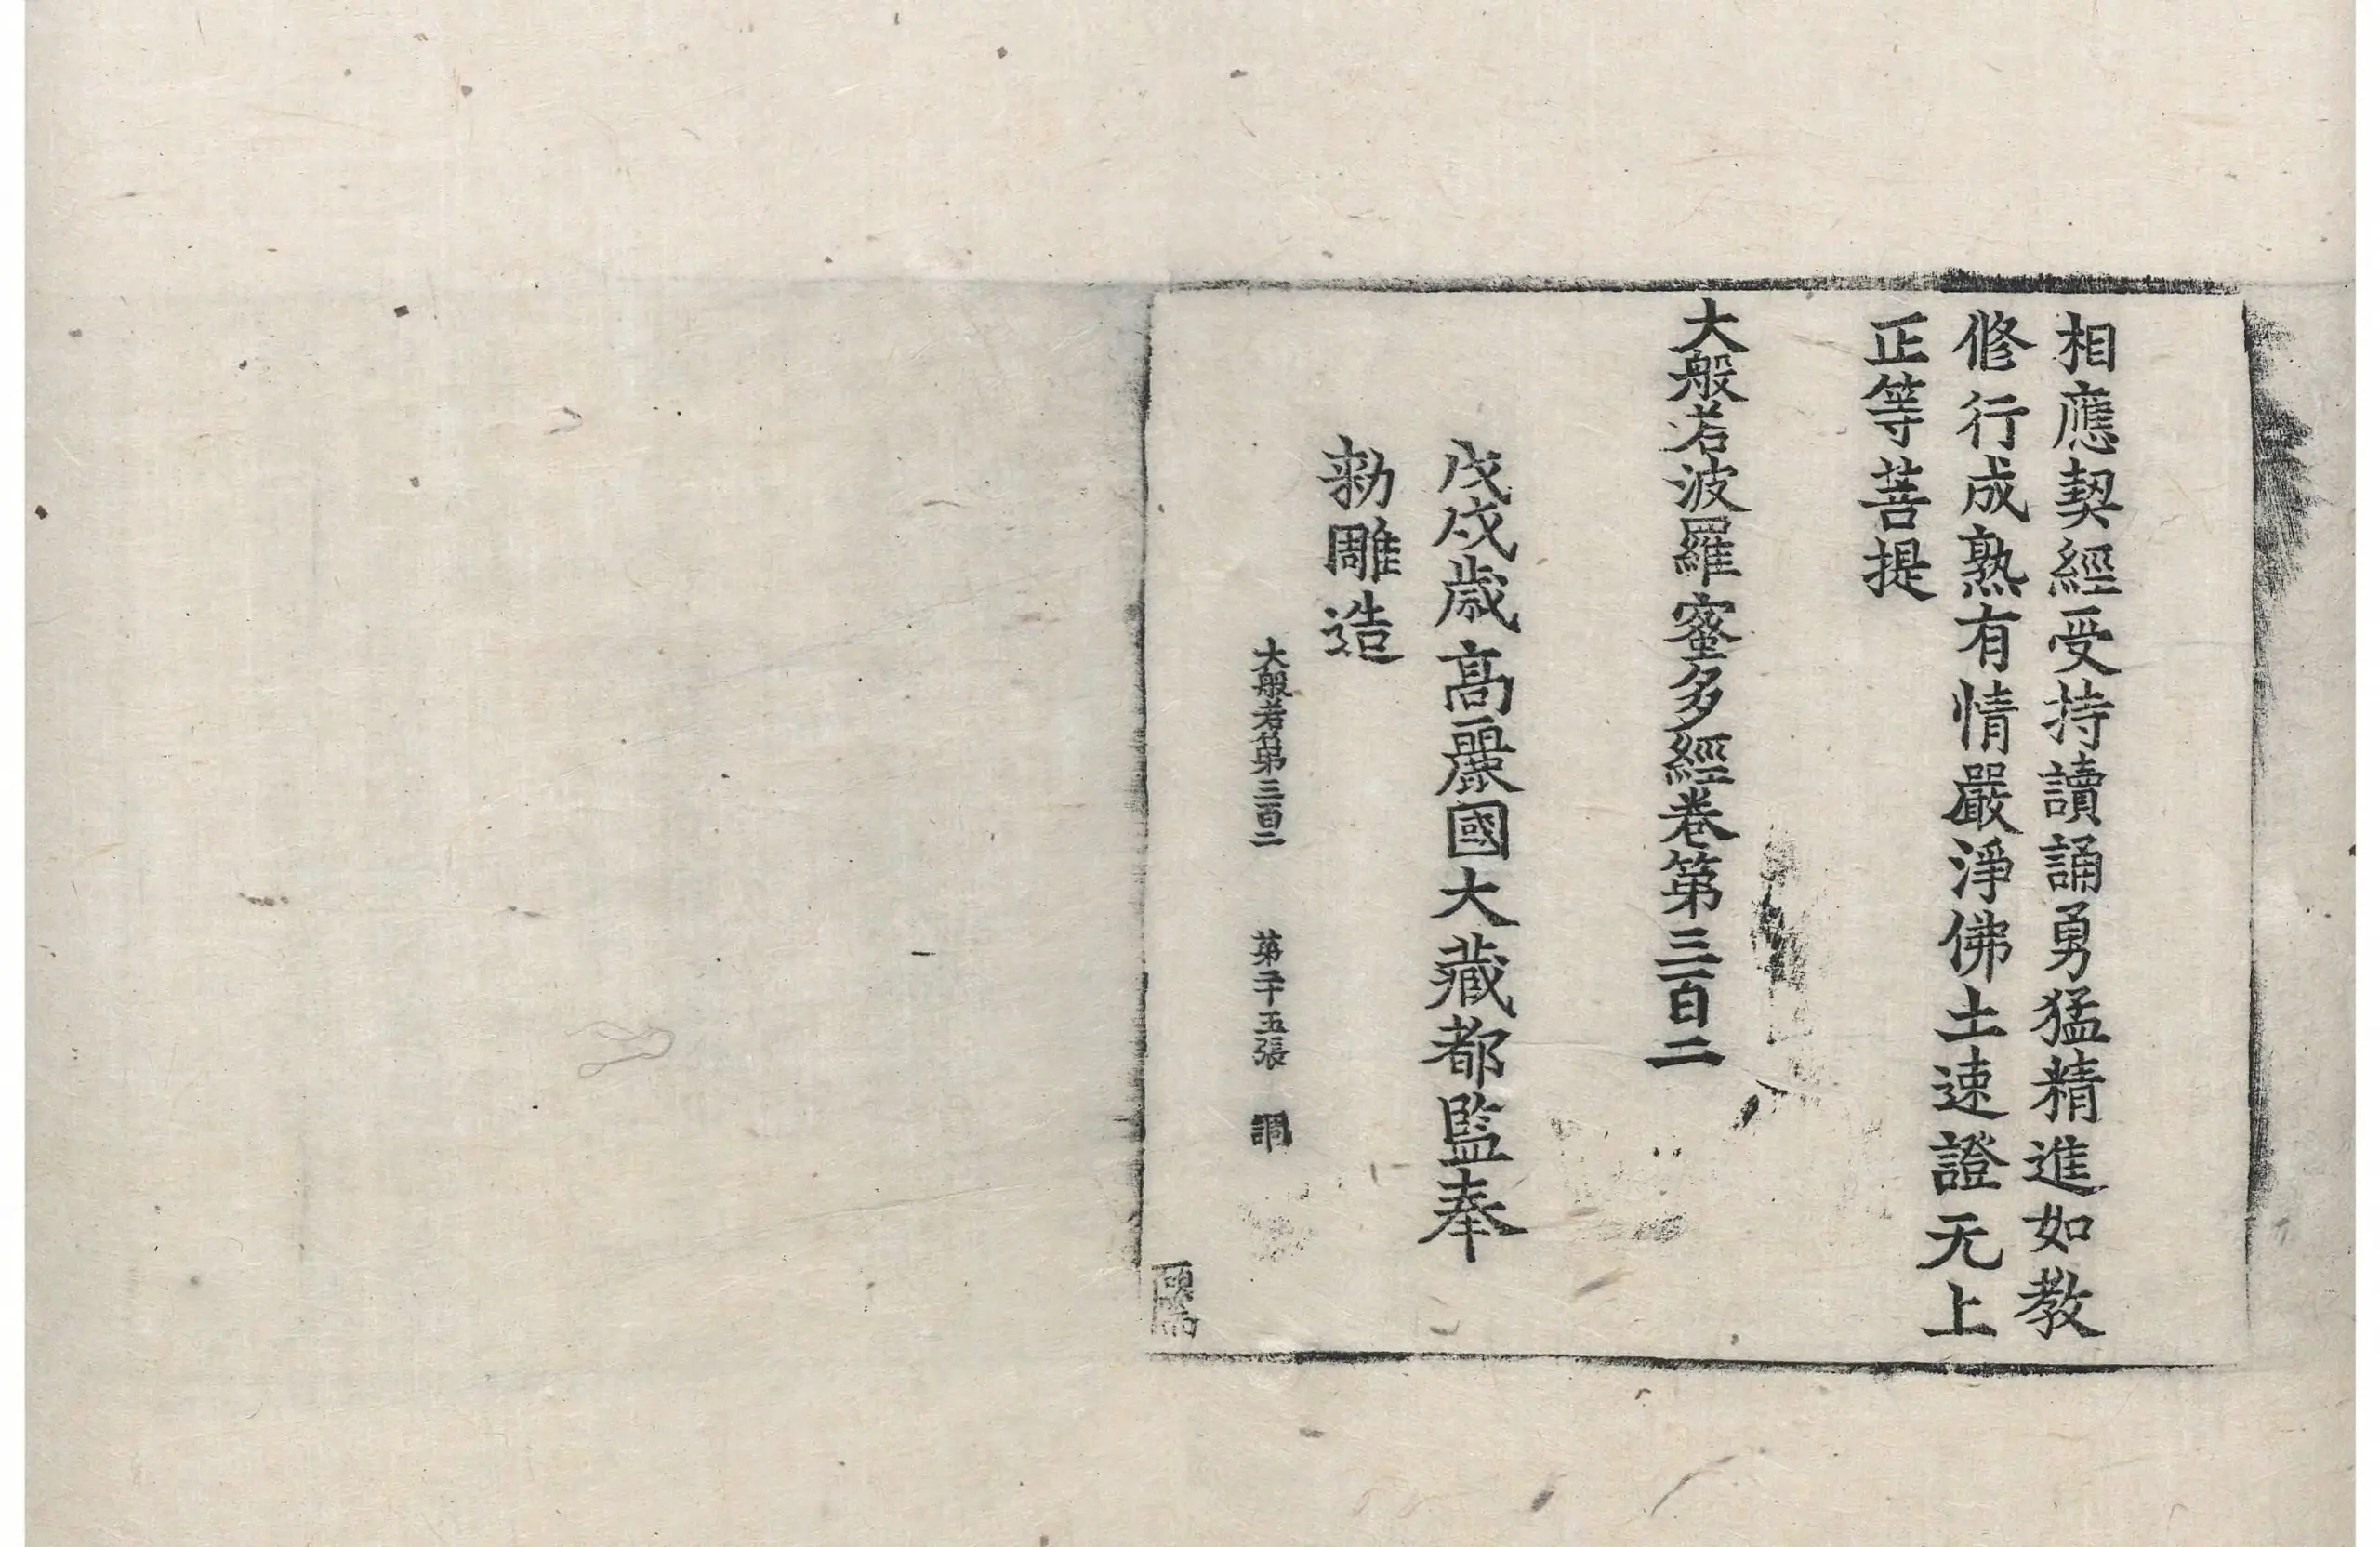 相應契經受持讀誦勇猛精進如教
修行成熟有情嚴淨佛土速證无上
正等菩提
大般若波羅蜜多經卷第三百二
戊戌歲高麗國大藏都監奉
勅雕造
大般若第三百二 第二十五張 調